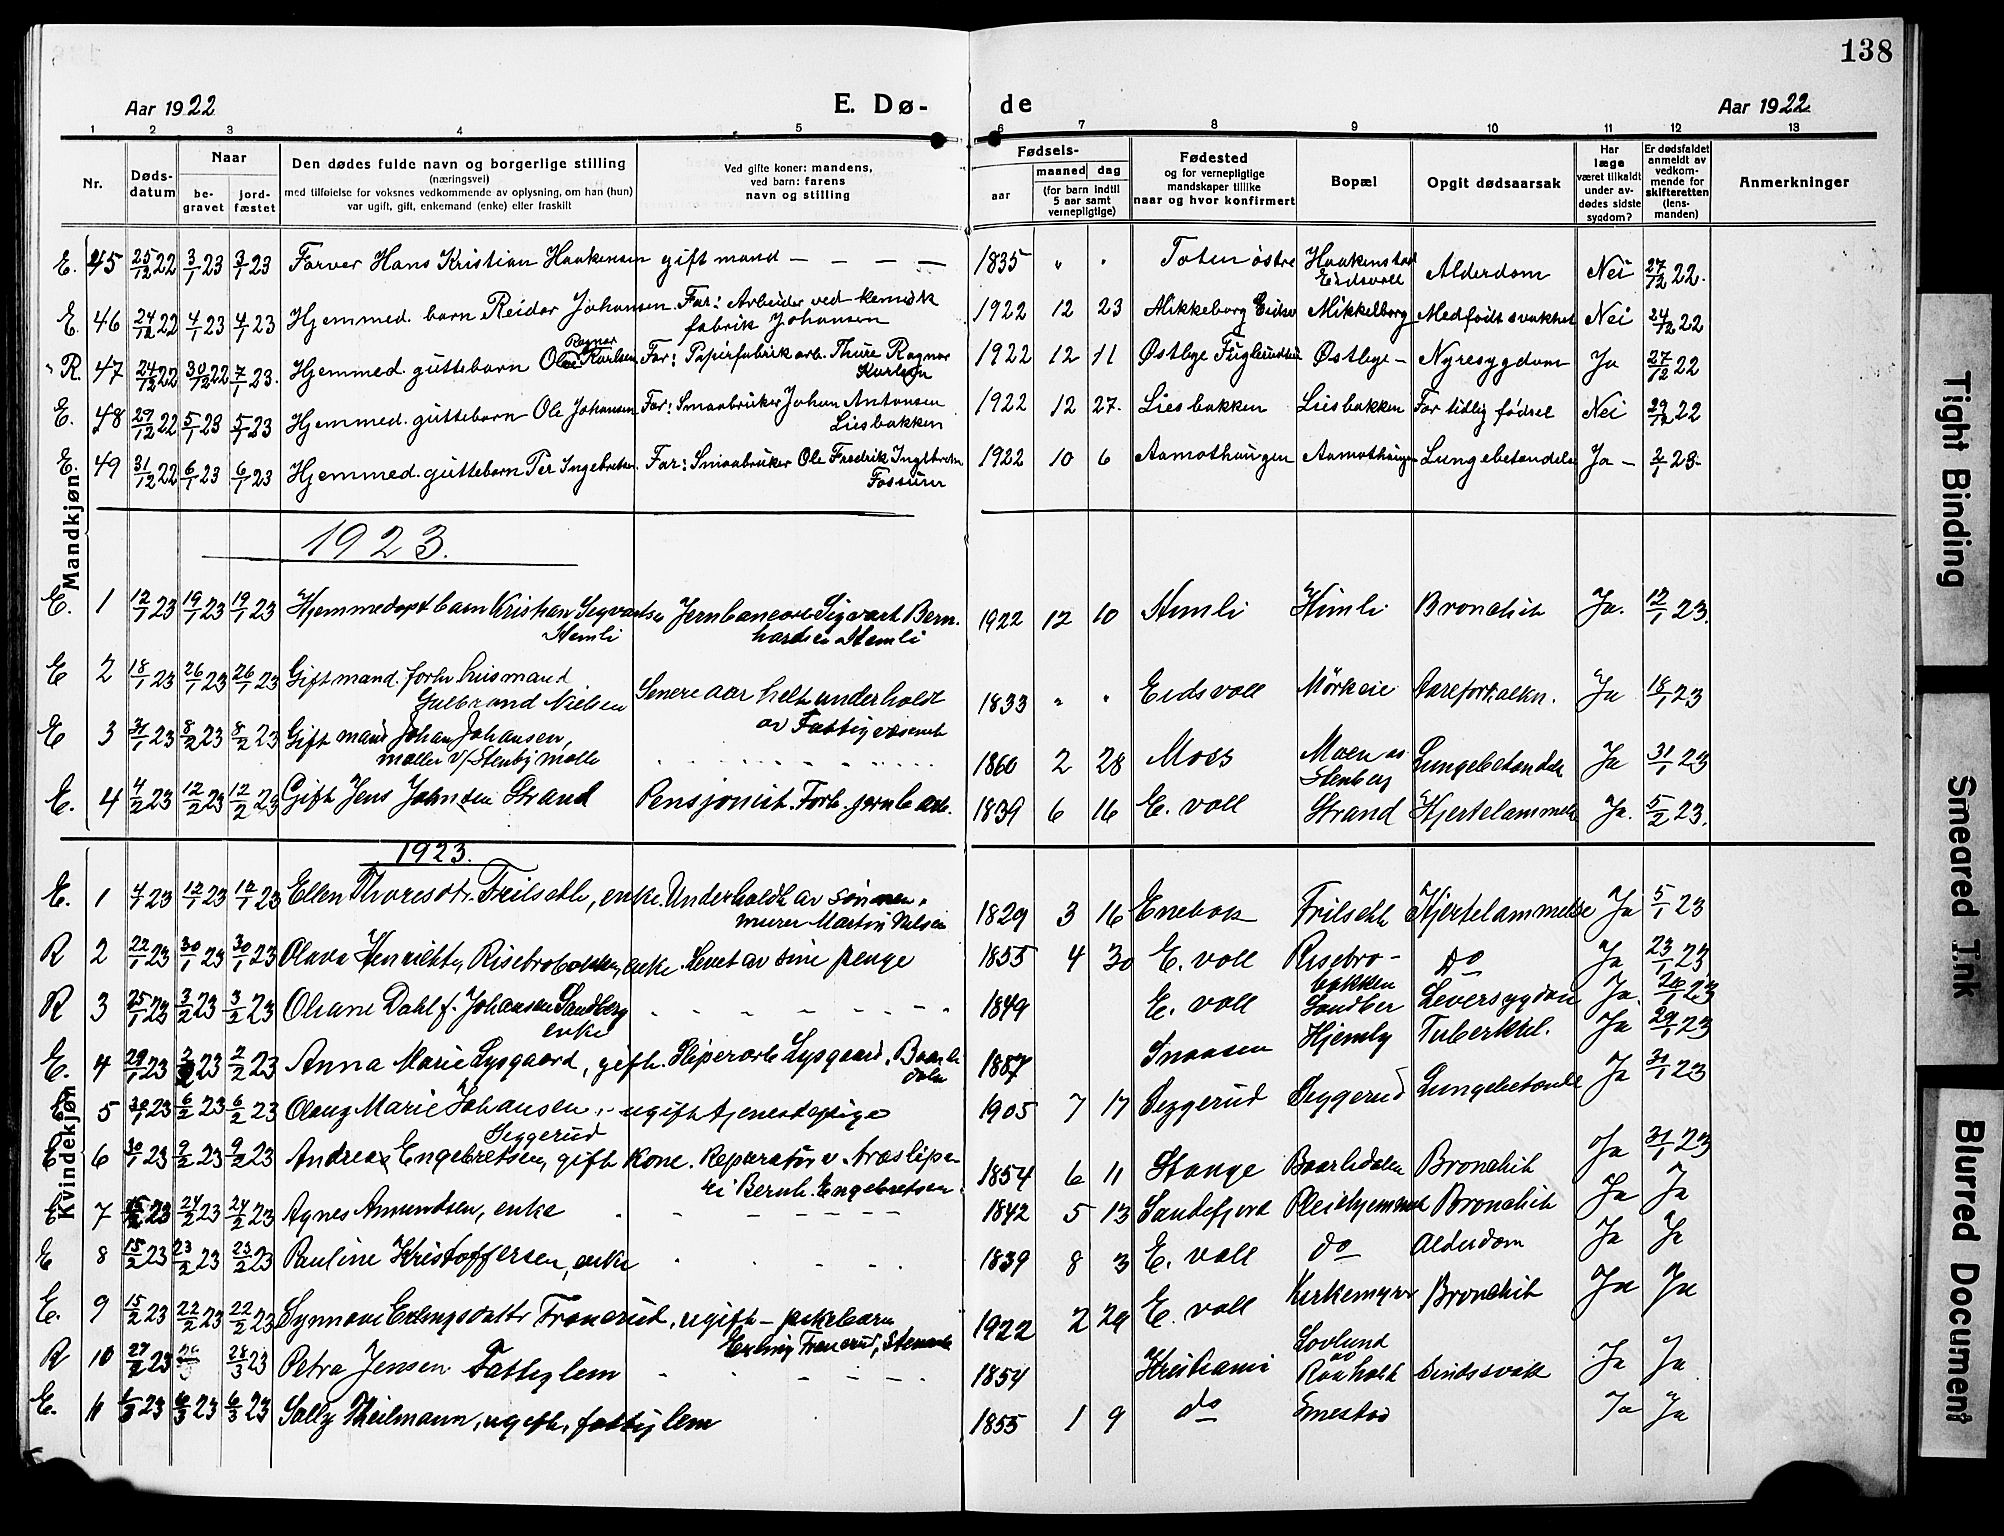 138
Aar 1922
E. Dø-
de
Aar 1922
1 2 3 4 5 6 7 8 9 10 11 12 13
Nr.
Døds-
datum
Naar
be-
gravet
jord-
fæstet
Den dødes fulde navn og borgerlige stilling
(næringsvei)
med tilføielse for voksnes vedkommende av oplysning, om han (hun)
var ugift, gift, enkemand (enke) eller fraskilt
Ved gifte koner: mandens,
ved barn: farens
navn og stilling
Fødsels-
aar
maaned dag
(for barn indtil
5 aar samt
vernepligtige)
Fødested
og for vernepligtige
mandskaper tillike
naar og hvor konfirmert
Bopæl
Opgit dødsaarsak
Har
læge
været tilkaldt
under av-
dødes sidste
sygdom?
Er dødsfaldet
anmeldt av
vedkom-
mende for
skifteretten
(lens-
manden)
Anmerkninger
Mandkjøn
E. 45 25/12 22 3/1 23 3/1 23 Farver Hans Kristian Haakensen gift mand – – – – 1835 " " Toten østre Haakenstad Eidsvoll Alderdom Nei 27/12 22.
E. 46 24/12 22 4/1 23 4/1 23 Hjemmed. barn Reidar Johansen Far: Arbeider ved kemisk fabrik Johansen 1922 12 23 Mikkelborg Eidsv Mikkelborg Medfødt svakhet Nei 24/12 22
R. 47 24/12 22 30/12 22 7/1 23. Hjemmed. guttebarn Ole Ragnar Karlsen Far: Papirfabrikarb. Thure Ragnar Karlsen 1922 12 11 Østbye Østbye – Nyresygdom Ja 27/12 22
E. 48 29/12 22 5/1 23 5/1 23 Hjemmed. guttebarn Ole Johansen Far: Smaabruker Johan Antonsen Liesbakken 1922 12 27. Liesbakken Liesbakken For tidlig fødsel Nei 29/12 22
E. 49 31/12 22 6/1 23 6/1 23 Hjemmed. guttebarn Per Ingebretsen Far: Smaabruker Ole Fredrik Ingebretsen Fossum 1922 10 6 Aamothaugen Aamothaugen Lungebetændelse Ja – 2/1 23.
1923.
E. 1 12/1 23 19/1 23 19/1 23 Hjemmedøpt barn Kristian Sigvartsen Himli Jernbanearb. Sigvart Bernhardsen Himli 1922 12 10 Himli Himli Bronchit Ja. 12/1 23.
E 2 18/1 23 26/1 23 26/1 23 Gift mand. forhv husmand Gulbrand Nielsen Senere aar helt underholdt av Fattigvæsenet 1833 " " Eidsvoll Mörkeie Aareforkalkn. Ja 18/1 23
E 3 31/1 23 8/2 23 8/2 23 Gift mand Johan Johansen, møller v/ Stenbg mølle 1860 2 28 Moss Moen Stenberg Lungebetændelse Ja 31/1 23
E. 4 4/2 23 12/2 23 12/2 23 Gift Jens Johnsen Strand Pensjonist. Forh. jernb.arb. 1839 6 16 E. voll Strand Hjertelammelse Ja. 5/2 23.
Kvindekjøn
1923.
E. 1 4/1 23 12/1 23 12/1 23 Ellen Thoresdt. Frilseth, enke. Underholdt av sønnen, murer Martin Nilsen 1829 3 16 Enebak Frilseth Hjertelammelse Ja 5/1 23
R 2 22/1 23 30/1 23 30/1 23 Olava Henrichts, Risebrobakken, enke. Levet av sine penge 1855 4 30 E. voll Risebrobakken Do Ja 23/1 23
R 3 25/1 23 3/2 23 3/2 23 Oliane Dahl f. Johansen Sandberg enke 1849 E. voll Sandber Leversygdom Ja. 26/1 23
E. 4 29/1 23 2/2 23 2/2 23 Anna Marie Lysgaard, gift. Sliperarb Lysgaard, Baarlidalen 1887 Snaasen Hjemly Tuberkul. Ja 29/1 23
E 5 30/1 23 6/2 23 6/2 23 Olaug Marie Johansen Seggerud ugift tjenestepige 1905 7 17 Seggerud Seggerud Lungebetændelse Ja 31/1 23
E 6 30/1 23 9/2 23 9/2 23 Andrea Engebretsen, gift kone. Reparatør v. træsliperi Bernh. Engebretsen. 1854 6 11 Stange Baarlidalen Bronchit Ja 31/1 23
E 7 15/2 23 24/2 23 24/2 23 Agnes Amundsen, enke 1842 5 13 Sandefjord Pleiehjemmet Bronchit Ja Ja
E 8 15/2 23 23/2 23 23/2 23 Pauline Kristoffersen, enke 1839 8 3 E. voll do Alderdom Ja Ja
E. 9 15/2 23 22/2 23 22/2 23 Synnøve Erlingsdattr Fronerud, ugift – pikebarn Erling Fronerud, 1922 2 29 E. voll Kirkemyrv Bronchit Ja Ja
R 10 27/2 23 28/3 23 Petra Jensen Fattiglem 1854 Kristiania Lovlund Raaholt Sindssvak Ja Ja
E. 11 23 6/3 23 6/3 23 Sally Theilmann, ugift, fattiglem 1855 1 9 do Smestad Ja Ja
Tight Binding
Smeared Ink
Blurred Document